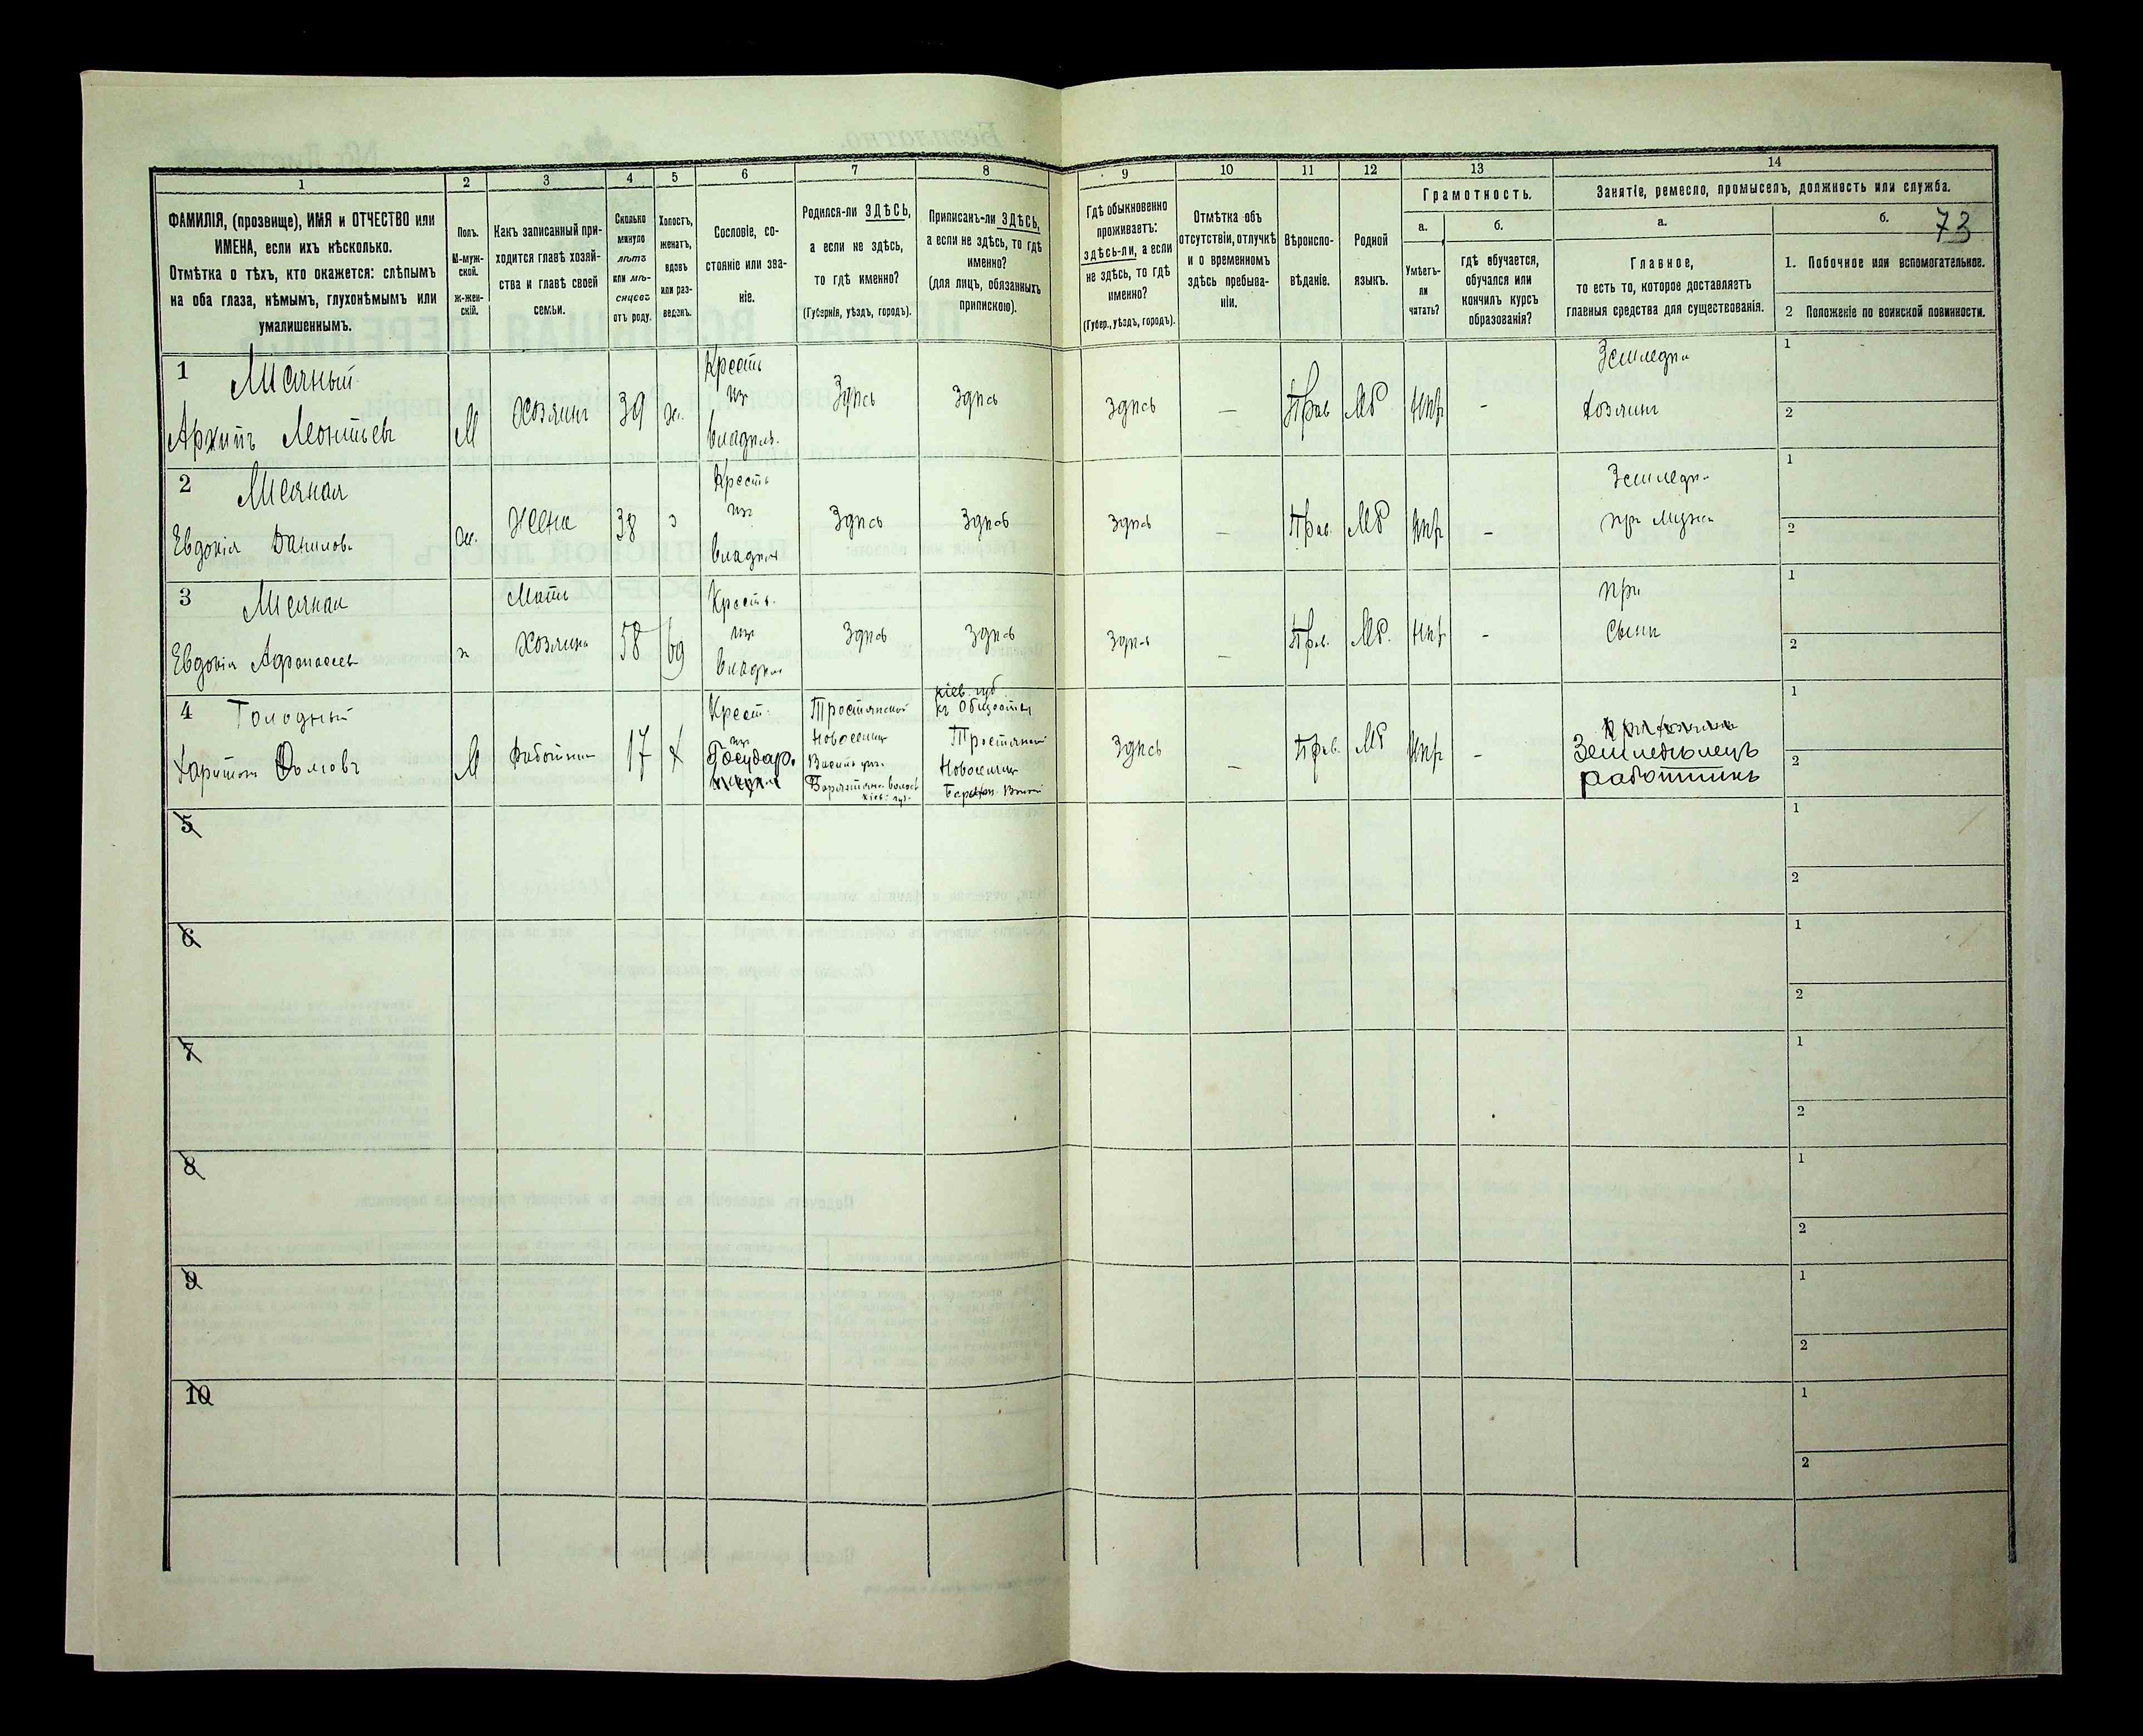 73
1
2
3
4
5
6
7
8
9
10
11
12
13
14
ФАМИЛІЯ, (прозвище), ИМЯ и ОТЧЕСТВО или
ИМЕНА, если ихъ нѣсколько.
Отмѣтка о тѣхъ, кто окажется: слѣпымъ
на оба глаза, нѣмымъ, глухонѣмымъ или
умалишеннымъ.
Полъ.
М-муж-
ской.
ж-жен-
скій.
Какъ записанный при-
ходится главѣ хозяй-
ства и главѣ своей
семьи.
Сколько
минуло
лѣтъ
или мѣ-
сяцевъ
отъ роду.
Холостъ,
женатъ,
вдовъ
или раз-
веденъ.
Сословіе, со-
стояніе или зва-
ніе.
Родился-ли ЗДѢСЬ,
а если не здѣсь,
то гдѣ именно?
(Губернія, уѣздъ, городъ).
Приписанъ-ли ЗДѢСЬ,
а если не здѣсь, то гдѣ
именно?
(для лицъ, обязанныхъ
припискою).
Гдѣ обыкновенно
проживаетъ:
здѣсь-ли, а если
не здѣсь, то гдѣ
именно?
(Губер., уѣздъ, городъ).
Отмѣтка объ
отсутствіи, отлучкѣ
и о временномъ
здѣсь пребыва-
ніи.
Вѣроиспо-
вѣданіе.
Родной
языкъ.
Грамотность.
а.
Умѣетъ-
ли
читать?
б.
гдѣ обучается,
обучался или
кончилъ курсъ
образованія?
Занятіе, ремесло, промыселъ, должность или служба.
а.
Главное,
то есть то, которое доставляетъ
главныя средства для существованія.
б.
1. Побочное или вспомогательное.
2 Положеніе по воинской повинности.
1
Архипъ Леонтьевъ
М
Хозяинъ
39
ж.
Крест
изъ
владѣл.
Здѣсь
Здѣсь
Здѣсь
—
Прав
МР
нѣт
-
Земледѣл
Хозяинъ
1
2
2
Евдокія Данилов
ж.
Жена
38
з
Крестъ
изъ
владѣл
Здѣсь
Здѣсь
Здѣсь
—
Прав.
МР
нѣт
-
Земледѣ
при мужѣ
1
2
3
Евдокія Афанасьев
ж
Мать
Хозяина
58
вд
Крестъ.
изъ
владѣл
Здѣсь
Здѣсь
Здѣсь
—
Прав.
МР.
нѣт
-
При
сынѣ
1
2
4 Голодный
Харитонъ
М
Работник
17
Х
Крест.
изъ
Государ.
Новоселиц
кіев. губ
Новоселиц
Здѣсь
—
Прав.
МР
нѣт
-
Земледѣлецъ
работникъ
1
2
5
1
2
6
1
2
7
1
2
8
1
2
9
1
2
10
1
2